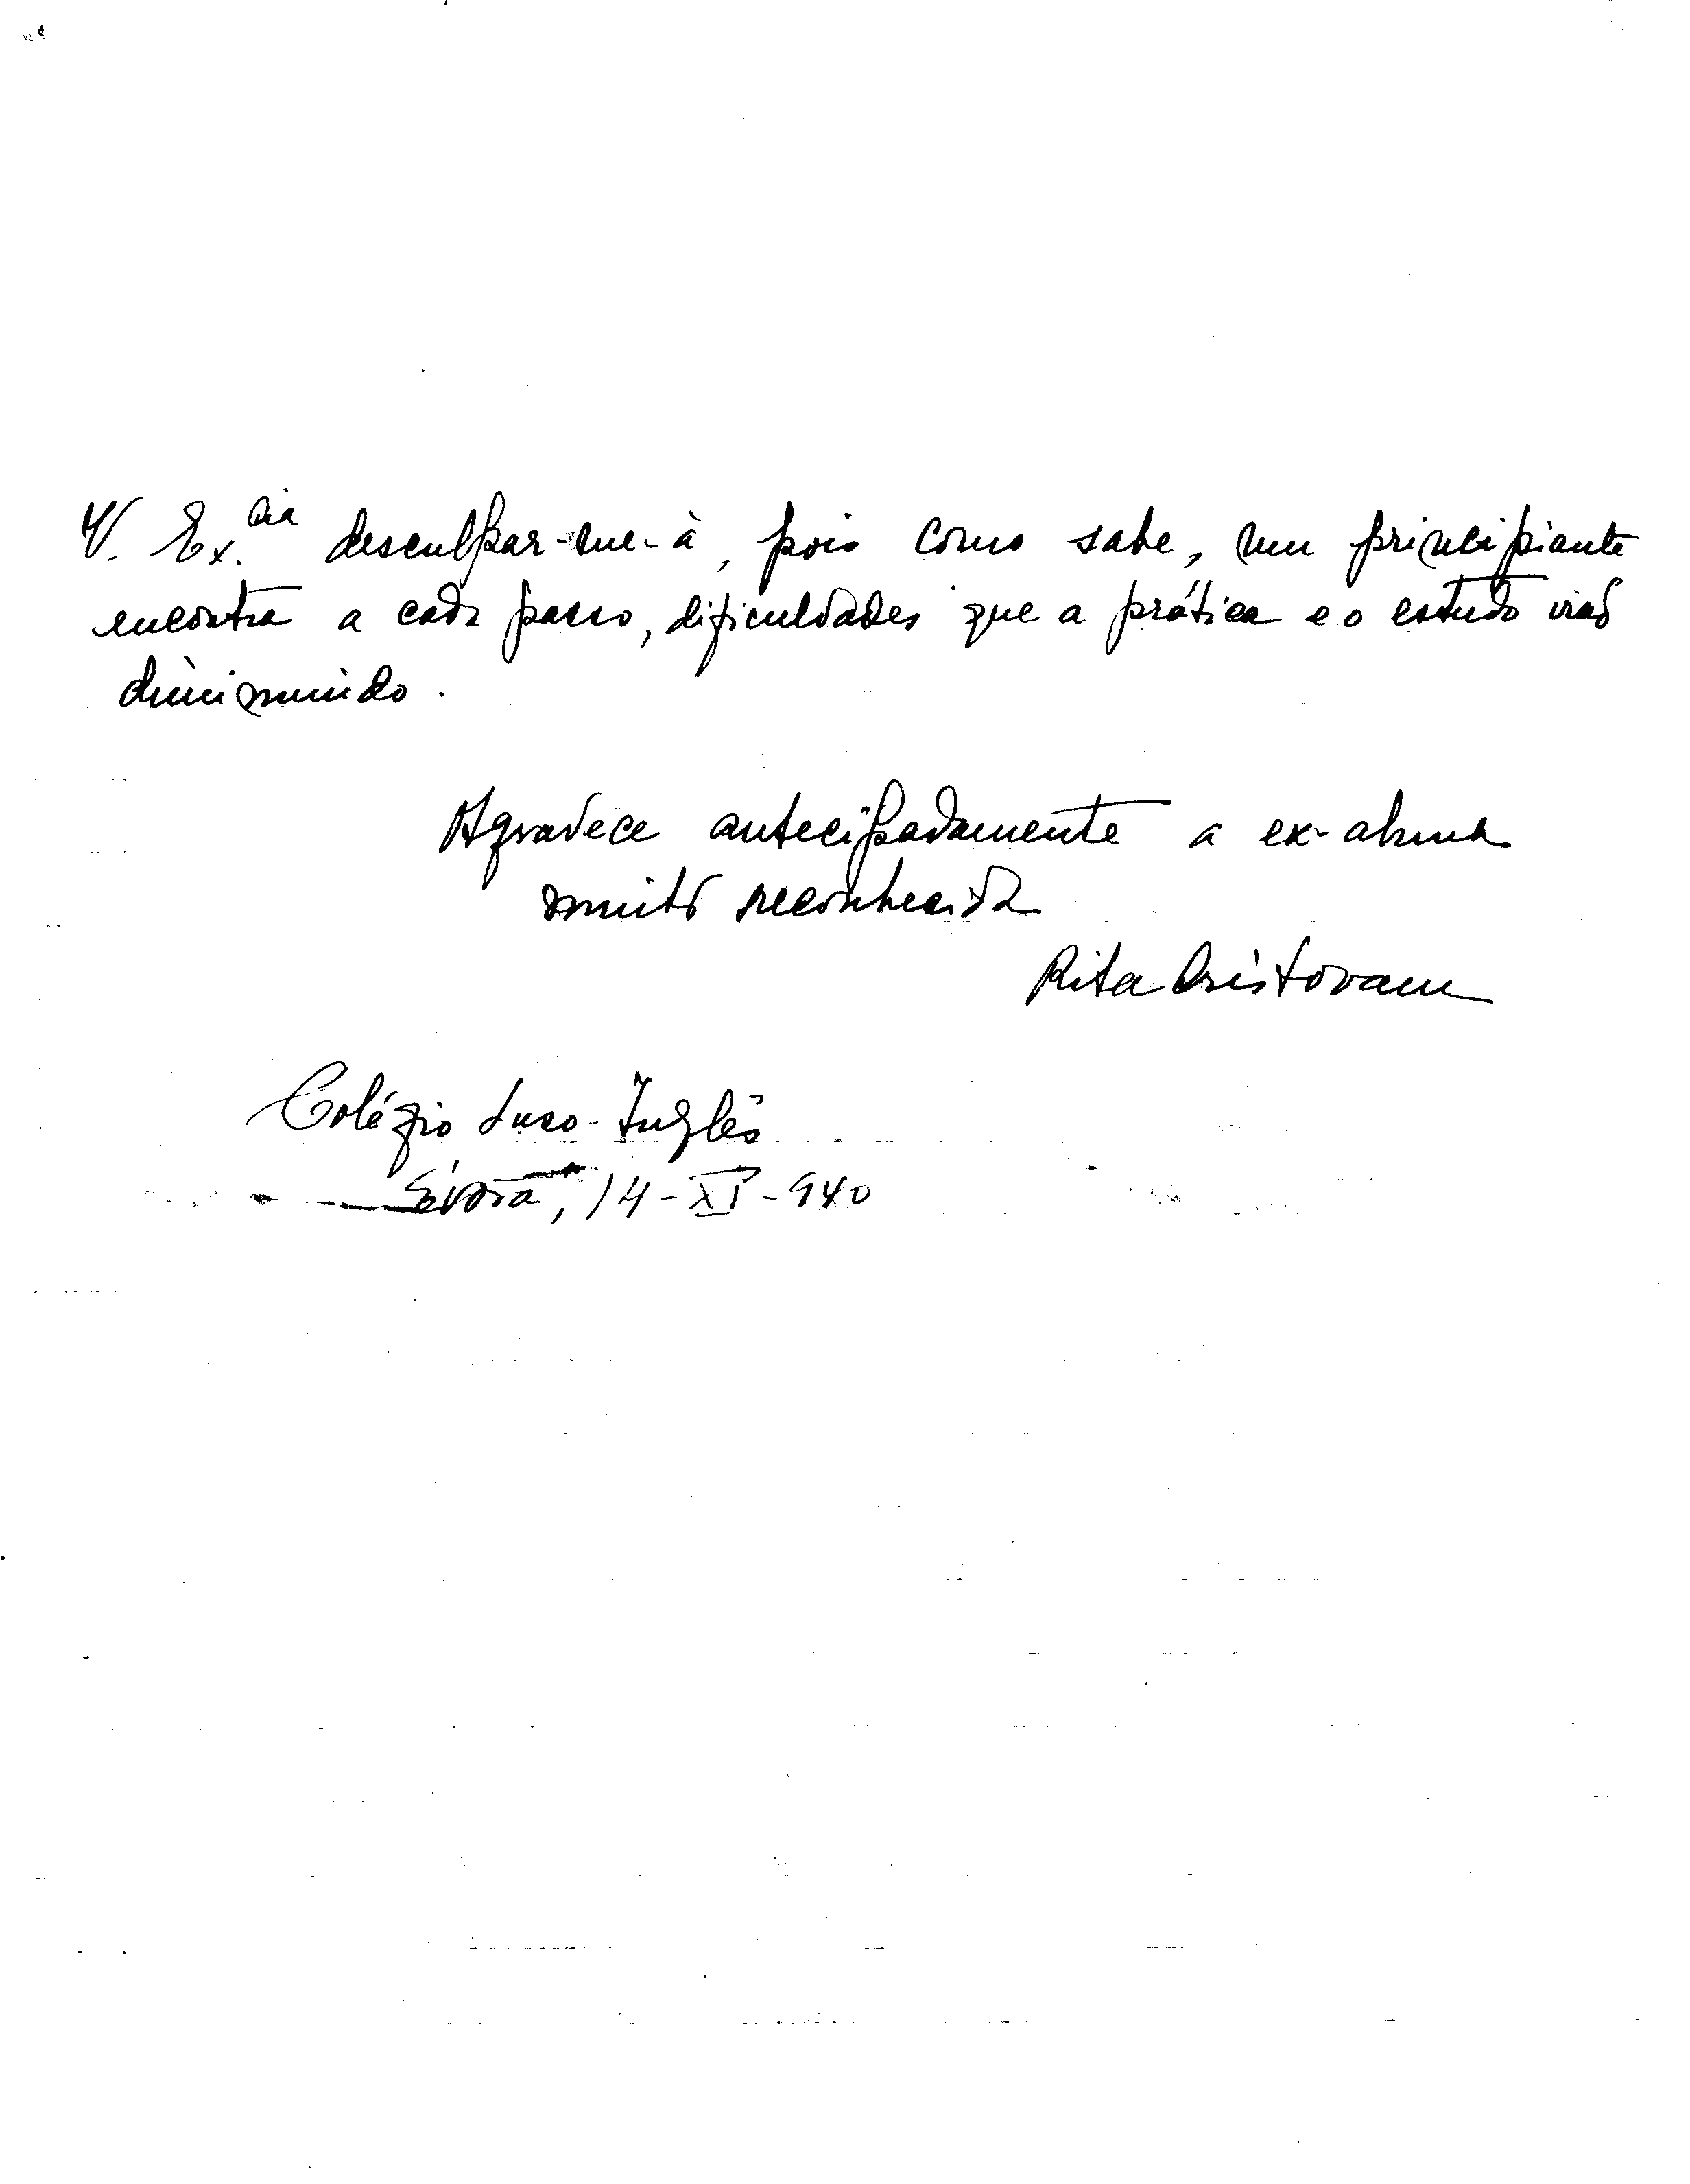 V. Ex.cia desculpar-me-à, pois como sabe, um principiante
encontra a cada passo, dificuldades que a prática e o estudo irão
diminuindo.
Agradece antecipadamente a ex-aluna
muito reconhecida
Rita Cristovam
Colégio Luso-Inglês
Évora, 14-XI-940